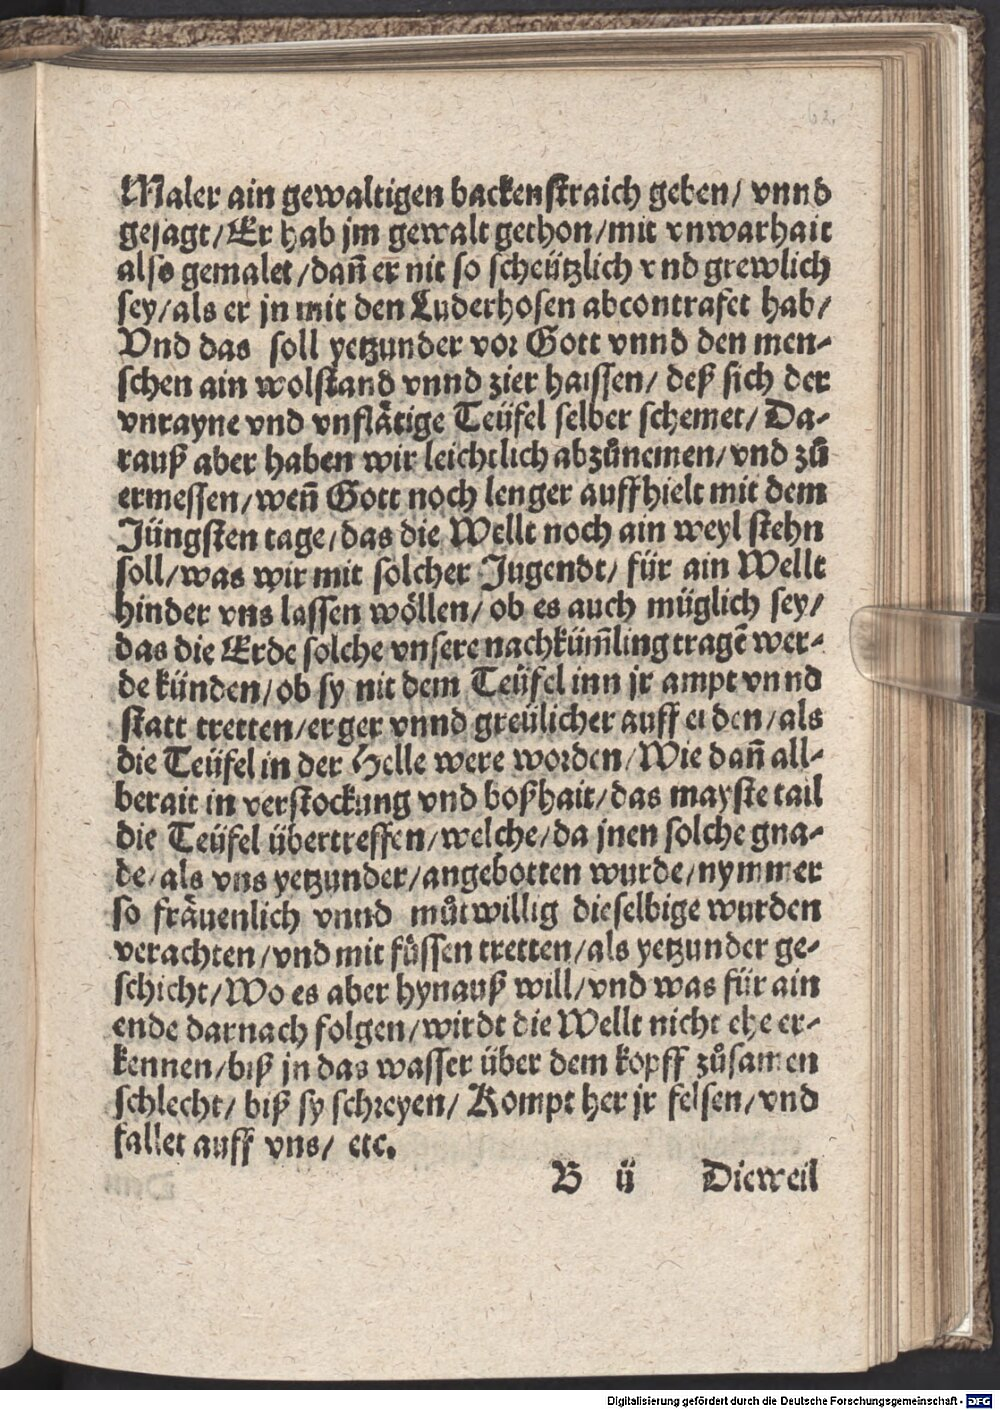 62.
Maler ain gewaltigen backenstraich geben/ vnnd
gesagt/Er hab jm gewalt gethon/mit vnwarhait
also gemalet/dañ er nit so scheützlich vnd grewlich
sey/als er jn mit den Luderhosen abcontrafet hab/
Vnd das soll yetzunder vor Gott vnnd den men-
schen ain wolstand vnnd zier haissen/ deß sich der
vnrayne vnd vnflätige Teüfel selber schemet/ Da-
rauß aber haben wir leichtlich abzůnemen/ vnd zů
ermessen/weñ Gott noch lenger auffhielt mit dem
Jüngsten tage/das die Wellt noch ain weyl stehn
soll/was wir mit solcher Jugendt/ für ain Wellt
hinder vns lassen wöllen/ ob es auch müglich sey/
das die Erde solche vnsere nachküm̃ling tragẽ wer-
de künden/ob sy nit dem Teüfel inn jr ampt vnnd
statt tretten/erger vnnd greülicher auff erden/als
die Teüfel in der Helle were worden/Wie dañ all-
berait in verstockung vnd boßhait/das mayste tail
die Teüfel übertreffen/welche/da jnen solche gna-
de/als vns yetzunder/angebotten wurde/nymmer
so fräuenlich vnnd můtwillig dieselbige wurden
verachten/vnd mit füssen tretten/als yetzunder ge-
schicht/Wo es aber hynauß will/vnd was für ain
ende darnach folgen/wirdt die Wellt nicht ehe er-
kennen/biß jn das wasser über dem kopff zůsamen
schlecht/ biß sy schreyen/ Kompt her jr felsen/vnd
fallet auff vns/ etc.
B ij Dieweil
Digitalisierung gefördert durch die Deutsche Forschungsgemeinschaft - DFG